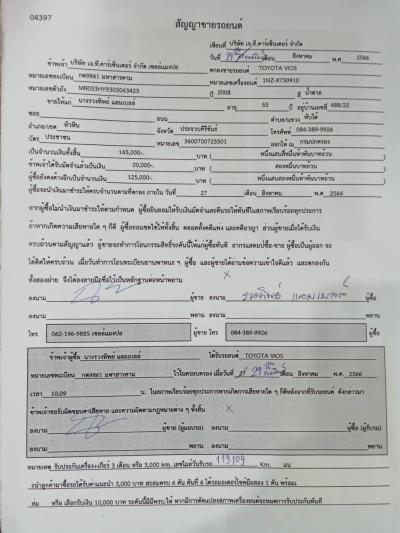 04397
สัญญาขายรถยนต์
เขียนที่ บริษัท เจ.ที.คาร์เซ็นเตอร์ จำกัด
วันที่ 29 เดือน สิงหาคม พ.ศ 2566
ข้าพเจ้า บริษัท เจ.ที.คาร์เซ็นเตอร์ จำกัด เซลล์แมงปอ ตกลงขายรถยนต์ TOYOTA VIOS
หมายเลขทะเบียน กต9861 มหาสารคาม หมายเลขเครื่องยนต์ 1NZ-X750910
หมายเลขตัวถัง MR053HY9305063423 ปี 2008 สี น้ำตาล
ขายให้แก่ นางรวงทิพย์ แลมเบลล์ อายุ 55 ปี อยู่บ้านเลขที่ 488/22
ซอย ถนน ตำบล/แขวง ทับใต้
อำเภอ/เขต หัวหิน จังหวัด ประจวบคีรีขันธ์ โทรศัพท์ 084-389-9926
บัตร ประชาชน หมายเลข 3600700723501 ออกให้โดย กรมปกครอง
เป็นจำนวนเงินทั้งสิ้น 145,000- บาท ( หนึ่งแสนสี่หมื่นห้าพันบาทถ้วน )
ข้าพเจ้าได้รับมัดจำแล้วเป็นเงิน 20,000- บาท ( สองหมื่นบาทถ้วน )
ผู้ซื้อยังคงค้างอีกเป็นจำนวนเงิน 125,000- บาท ( หนึ่งแสนสองหมื่นห้าพันบาทถ้วน )
ผู้ซื้อจะนำเงินมาชำระให้ครบจำนวนตามที่ตกลง ภายใน วันที่ 27 เดือน สิงหาคม พ.ศ 2566
หากผู้ซื้อไม่นำเงินมาชำระตามกำหนด ผู้ซื้อยินยอมให้ริบเงินมัดจำและคืนรถให้ทันทีในสภาพเรียบร้อยทุกประการ
ถ้าหากเกิดความเสียหายใด ๆ ก็ดี ผู้ซื้อยอมชดใช้ให้ทั้งสิ้น ตลอดทั้งคดีแพ่ง และคดีอาญา ส่วนผู้ขายเมื่อได้รับเงิน
ครบถ้วนตามสัญญาแล้ว ผู้ขายจะทำการโอนกรรมสิทธิ์รถคันนี้ให้แก่ผู้ซื้อทันที อากรแสตมป์ซื้อ-ขาย ผู้ซื้อเป็นผู้ออก จะ
ได้คิดให้ครบถ้วน เมื่อวันทำการโอนทะเบียนยานพาหนะ ๆ ผู้ซื้อ และผู้ขายได้อ่านข้อความเข้าใจดีแล้ว และตกลงกัน
ทั้งสองฝ่าย จึงได้ลงลายมือชื่อไว้เป็นหลักฐานต่อหน้าพยาน
ลงนาม ผู้ขาย ลงนาม รวงทิพย์ แลมเบลล์ ผู้ซื้อ
ลงนาม พยาน ลงนาม พยาน
โทร 062-196-9885 เซลล์แมงปอ ผู้ขาย โทร 084-389-9926 ผู้ซื้อ
ข้าพเจ้าผู้ซื้อ นางรวงทิพย์ แลมเบลล์ ได้รับรถยนต์ TOYOTA VIOS
หมายเลขทะเบียน กต9861 มหาสารคาม ไว้ในครอบครอง เมื่อวันที่ 29 เดือน สิงหาคม พ.ศ 2566
เวลา 10.09 น. ในสภาพเรียบร้อยทุกประการหากเกิดการเสียหายใด ๆ ก็ดีหลังจากที่รับรถยนต์ ดังกล่าวมา
ข้าพเจ้าขอรับผิดชอบค่าเสียหาย และความผิดตามกฎหมายต่าง ๆ ทั้งสิ้น
ลงนาม ผู้ขาย (ผู้มอบรถ) ลงนาม ผู้ซื้อ (ผู้รับรถ)
ลงนาม พยาน ลงนาม พยาน
หมายเหตุ รับประกันเครื่อง+เกียร์ 3 เดือน หรือ 3,000 km. เลขไมล์วันรับรถ 113109 Km. แน
ะนำลูกค้ามาซื้อรถได้รับค่าแนะนำ 3,000 บาท สะสมครบ 6 คัน คันที่ 6 ได้รถมอเตอร์ไซค์มือสอง 1 คัน พร้อมเ
ล่ม หรือ เลือกรับเงิน 10,000 บาท รถคันนี้มีพรบ.ให้ หากมีการดัดแปลงสภาพเครื่องยนต์จะหมดการรับประกันทันที